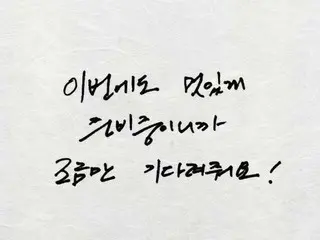 이번에도 멋있게
준비중이니까
조금만 기다려줘요!